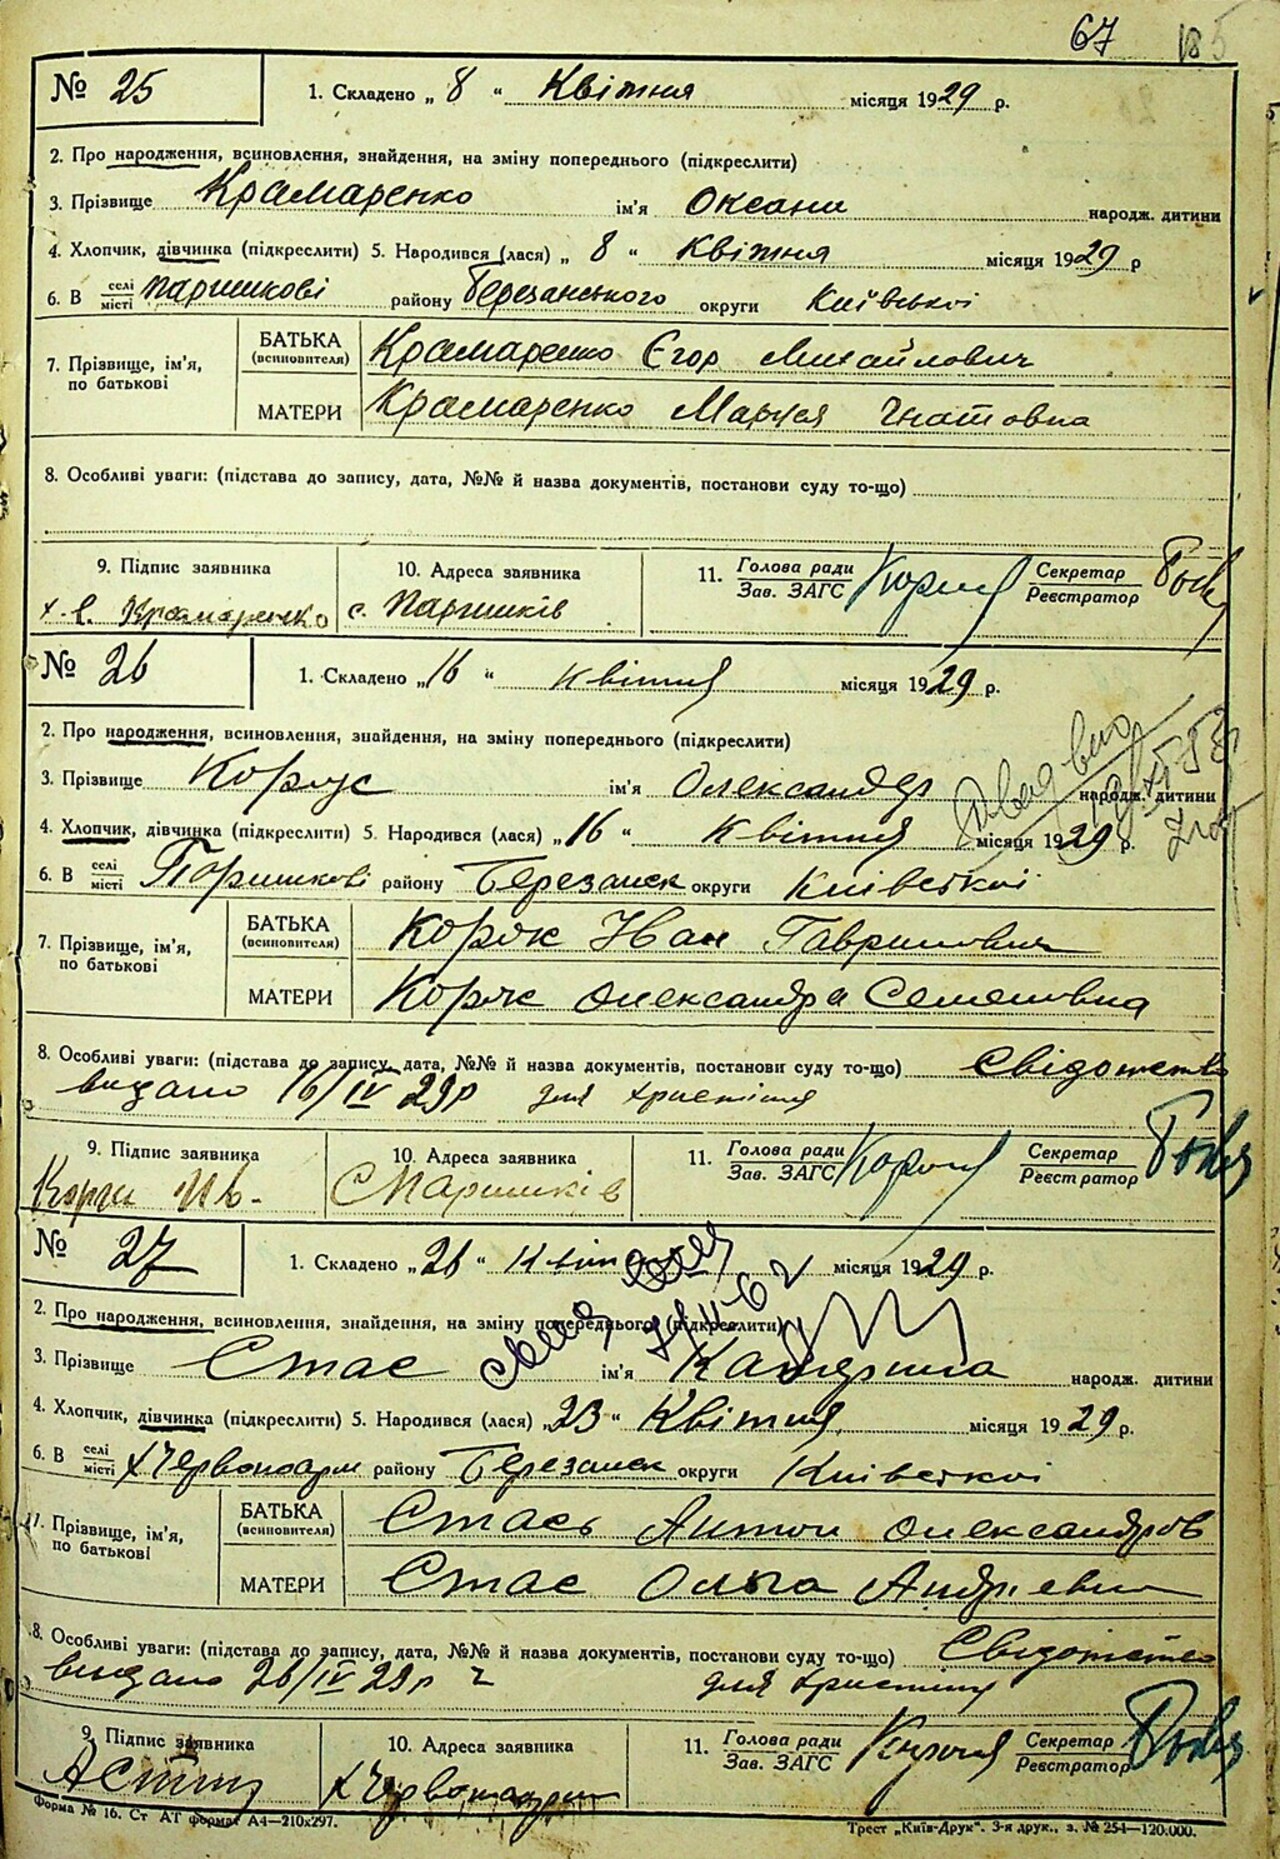 67 185
№ 25 1. Складено „ 8 “ Квітня місяця 1929 р.
2. Про народження, всиновлення, знайдення, на зміну попереднього (підкреслити)
3. Прізвище Крамаренко ім'я Оксани народж. дитини
4. Хлопчик, дівчинка (підкреслити) 5. Народився (лася) „ 8 “ Квітня місяця 1929 р
6. В селі місті Паришкові району Березанського округи Київської
7. Прізвище, ім'я, по батькові
БАТЬКА (всиновителя) Крамаренко Єгор Михайлович
МАТЕРИ Крамаренко Маруся Гнатовна
8. Особливі уваги: (підстава до запису, дата, №№ й назва документів, постанови суду то-що)
9. Підпис заявника 10. Адреса заявника 11. Голова ради Зав. ЗАГС Секретар Реєстратор
Крамаренко с. Паришків
№ 26 1. Складено „ 16 “ квітня місяця 1929 р.
2. Про народження, всиновлення, знайдення, на зміну попереднього (підкреслити)
3. Прізвище ім'я Олександер народж. дитини
4. Хлопчик, дівчинка (підкреслити) 5. Народився (лася) „ 16 “ Квітня місяця 1929 р.
6. В селі місті Паришкові району Березанск округи Київської
7. Прізвище, ім'я, по батькові
БАТЬКА (всиновителя) Коряк Іван Гаврилович
МАТЕРИ Коряк Олександра Семеновна
8. Особливі уваги: (підстава до запису, дата, №№ й назва документів, постанови суду то-що) Свідоцтво
видано 16/IV 29р для
9. Підпис заявника 10. Адреса заявника 11. Голова ради Зав. ЗАГС Секретар Реєстратор
Ив. с Паришків
№ 27 1. Складено „ 26 “ Квітня місяця 1929 р.
2. Про народження, всиновлення, знайдення, на зміну попереднього (підкреслити)
3. Прізвище Стас ім'я Катерина народж. дитини
4. Хлопчик, дівчинка (підкреслити) 5. Народився (лася) „ 23 “ Квітня місяця 1929 р.
6. В селі місті х Червоноарм району Березанск округи Київської
7. Прізвище, ім'я, по батькові
БАТЬКА (всиновителя) Стась Антон Олександров
МАТЕРИ Стас Ольга
8. Особливі уваги: (підстава до запису, дата, №№ й назва документів, постанови суду то-що) Свідоцтво
видано 26/IV 29р для
9. Підпис заявника 10. Адреса заявника 11. Голова ради Зав. ЗАГС Секретар Реєстратор
Форма № 16. Ст АТ формат А4—210х297. Трест „Київ-Друк“. 3-я друк., з. № 254—120.000.